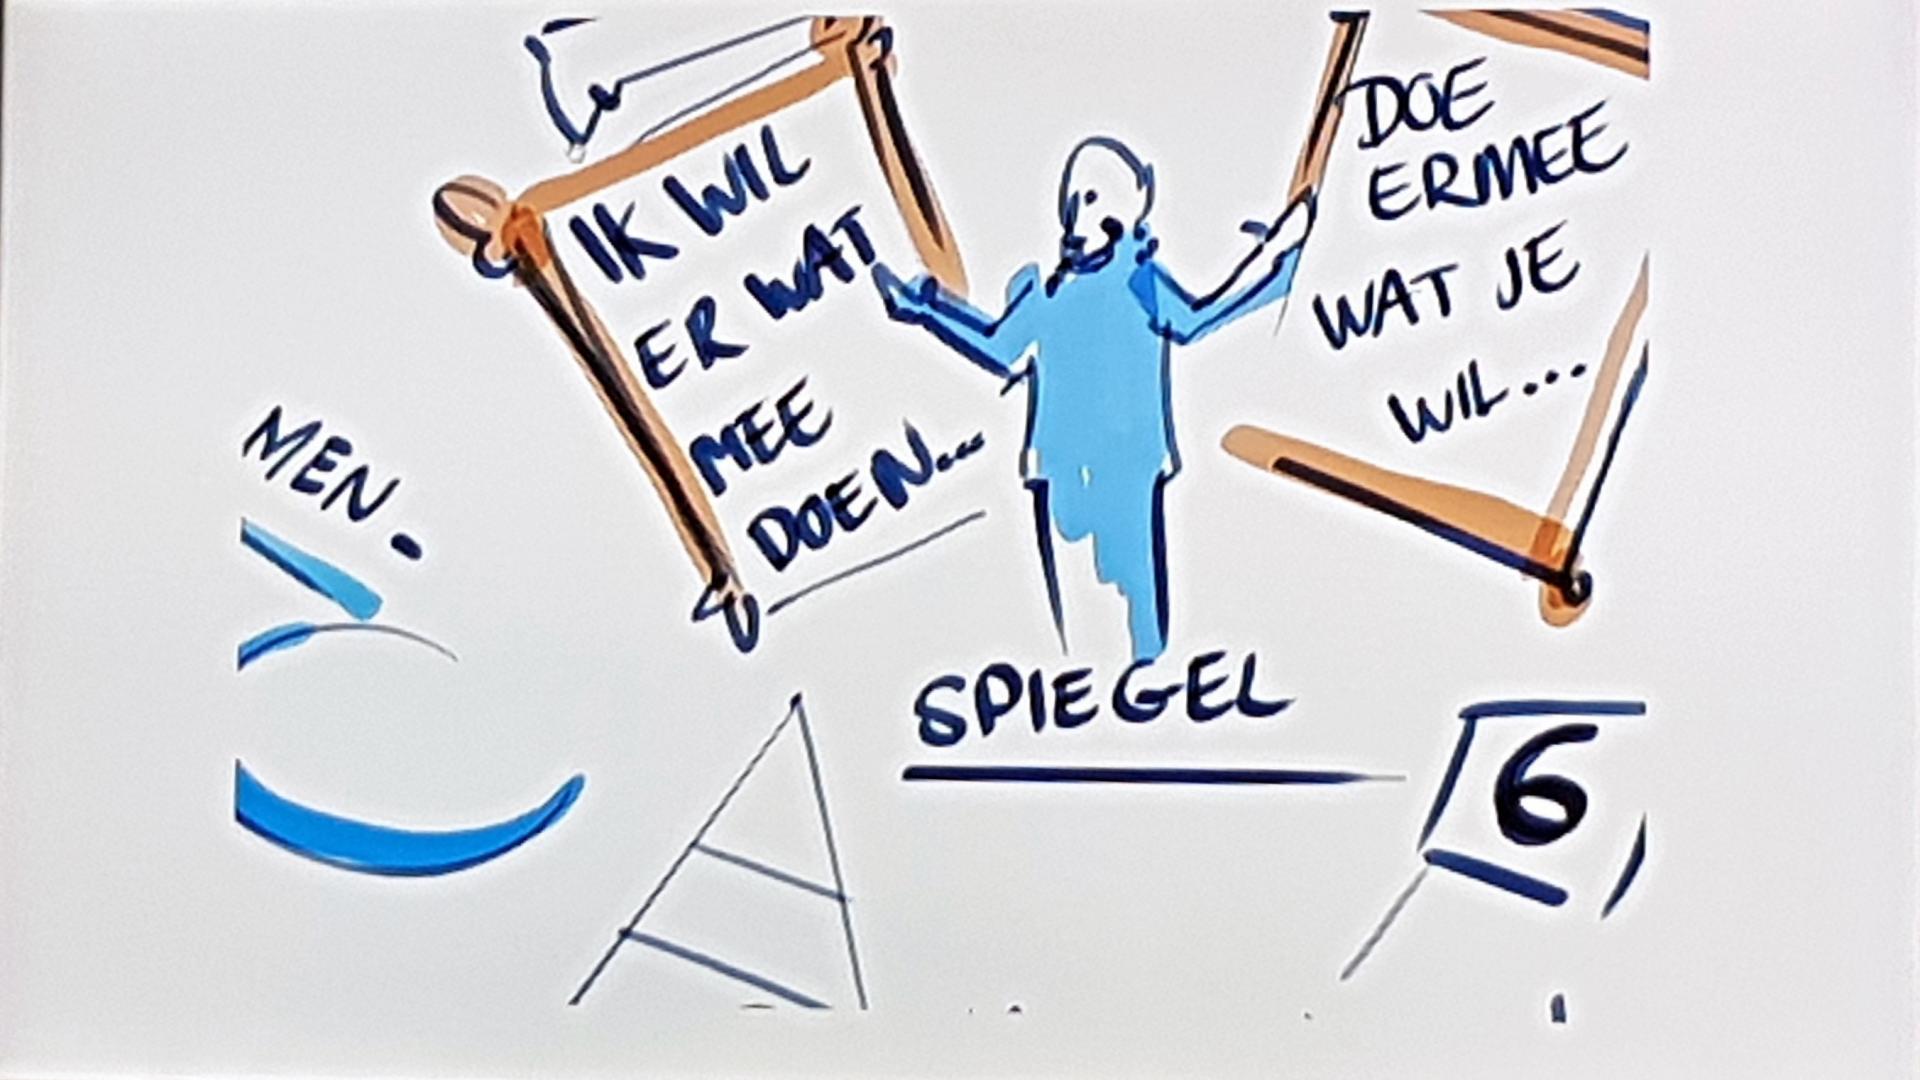 IK WIL
ER WAT
MEE
DOEN...
DOE
ERMEE
WAT JE
WIL...
MEN.
SPIEGEL
6